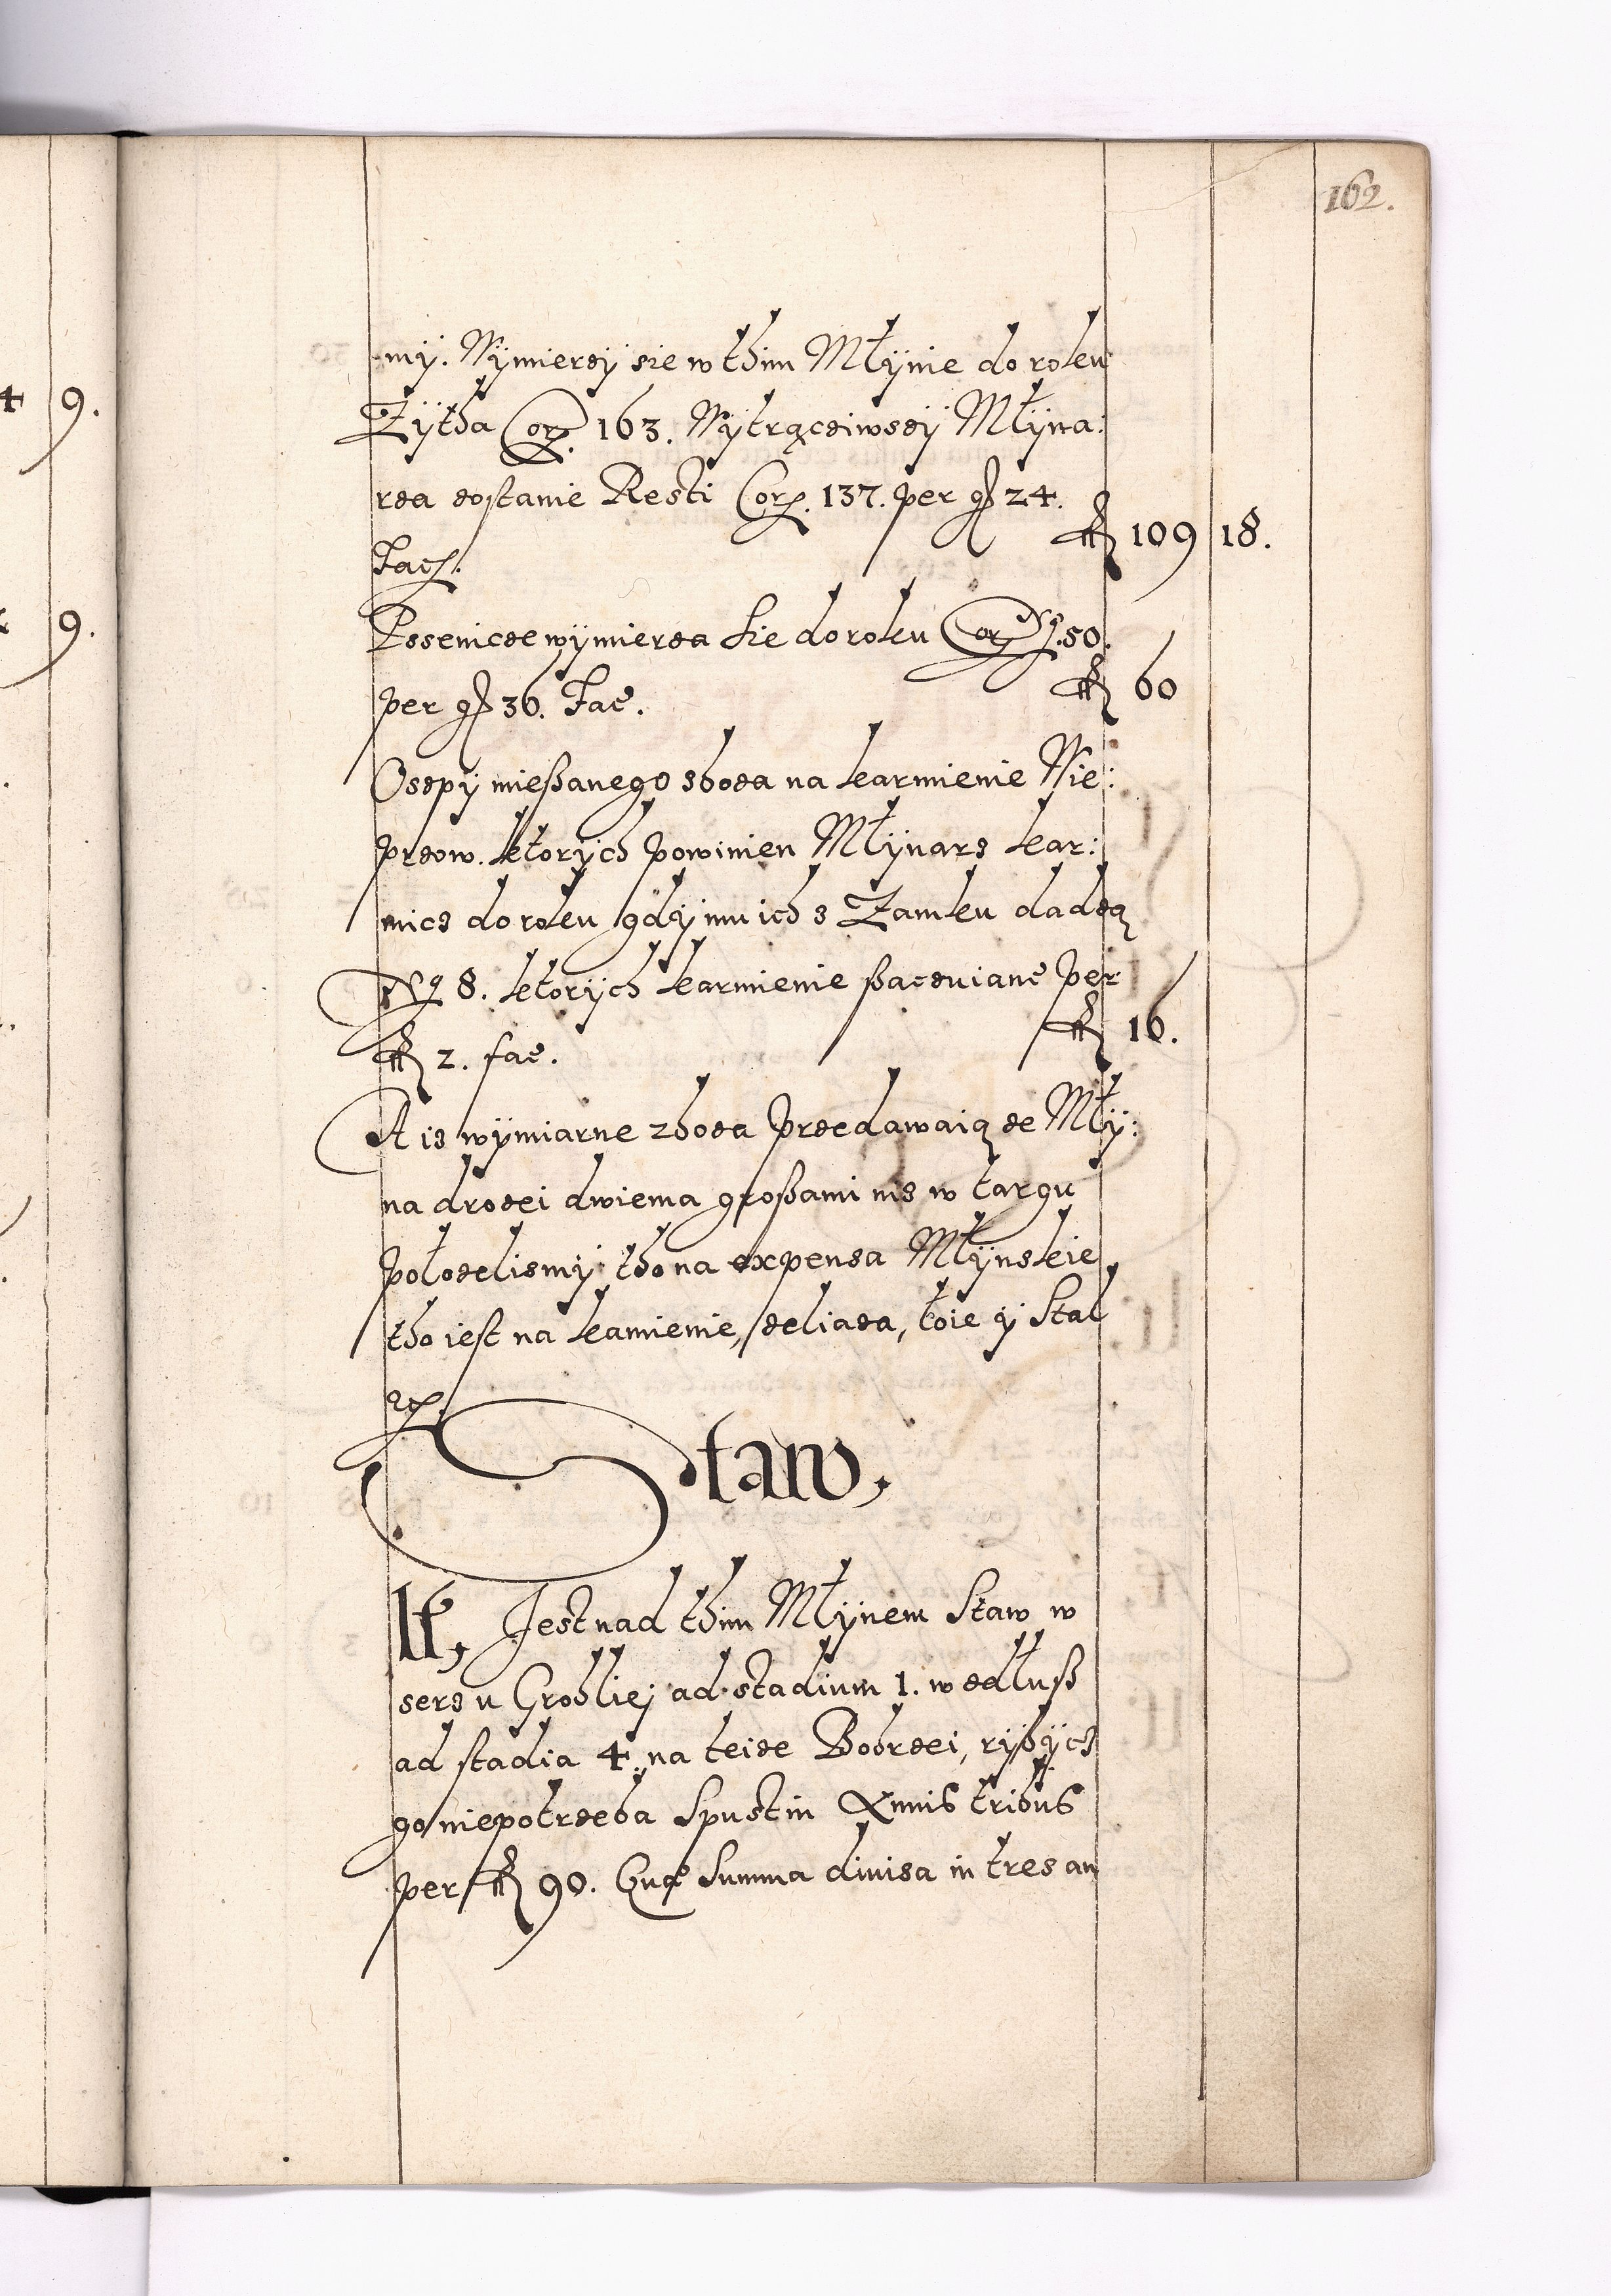 162.
4 9.
9.
my. Wymierzy sie w thim Młynie do roku
Zytha Corz. 163. Wytrącziwszy Młyna:
rza zostanie Resti Corz. 137. per gr 24.
Facz. fl 109 18.
Pssenicze wymierza sie do roku Corz No. 50.
per gr 36. Fac. fl 60
Osepy mießanego zboza na karmienie Wie:
przow. ktorych powinien Młynarz kar:
micz do roku gdy mu ich z Zamku dadzą
No 8. ktorych karmienie ßaczuiane per
fl 2. fac. fl 16.
A iz wymiarne zboza przedawaią ze Mły:
na drozei dwiema großami niz w targu
położelismy tho na expensa Młynskie,
tho iest na kamienie, zeliaza, łoie y Stal
etc.
Staw,
It, Jest nad thim Młynem Staw w
serz u Grobliej ad stadium 1. w zdłuß
ad stadia 4. na teize Bobrzei, rybÿ ich
go niepotrzeba Spust in Annis tribus
per fl 90. Quae Summa diuisa in tres an